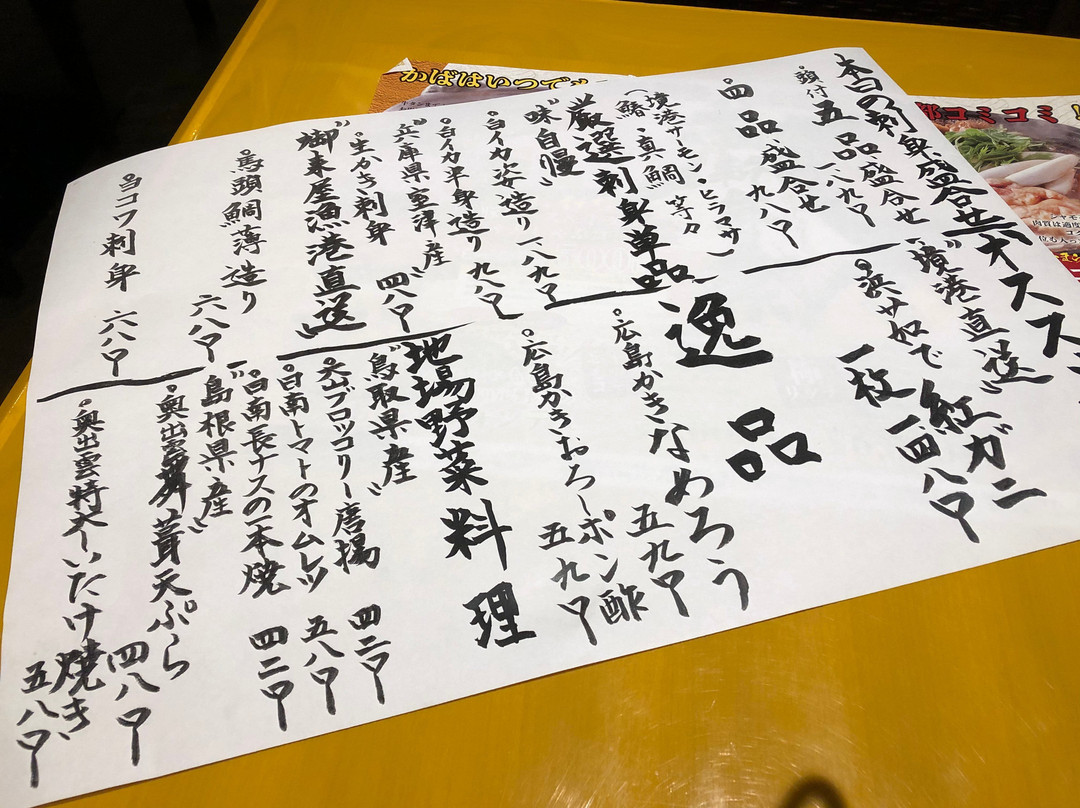 本日の刺身盛合せ
頭付
五品盛合せ
一八九円
四品盛合せ
九八円
境港サーモン・ヒラマサ
鰆・真鯛等々
厳選刺身単品
"味自慢"
白イカ姿造り 一八九円
白イカ半身造り 九八円
"兵庫県室津産"
生かき刺身 四八円
"御来屋漁港直送"
馬頭鯛薄造り 六八円
ヨコワ刺身 六八円
オススメ
"境港直送"
浜サ茹で紅ガニ
一枚 一四八円
逸品
広島かきなめろう 五九円
広島かきおろしポン酢 五九円
地場野菜料理
"鳥取県産"
大山ブロッコリー唐揚 四二円
日南トマトのオムレツ 五八円
日南長ナスの一本焼 四二円
"島根県産"
奥出雲舞茸天ぷら 四八円
奥出雲特大しいたけ焼き 五八円
かばはいつでも
コミコミ！